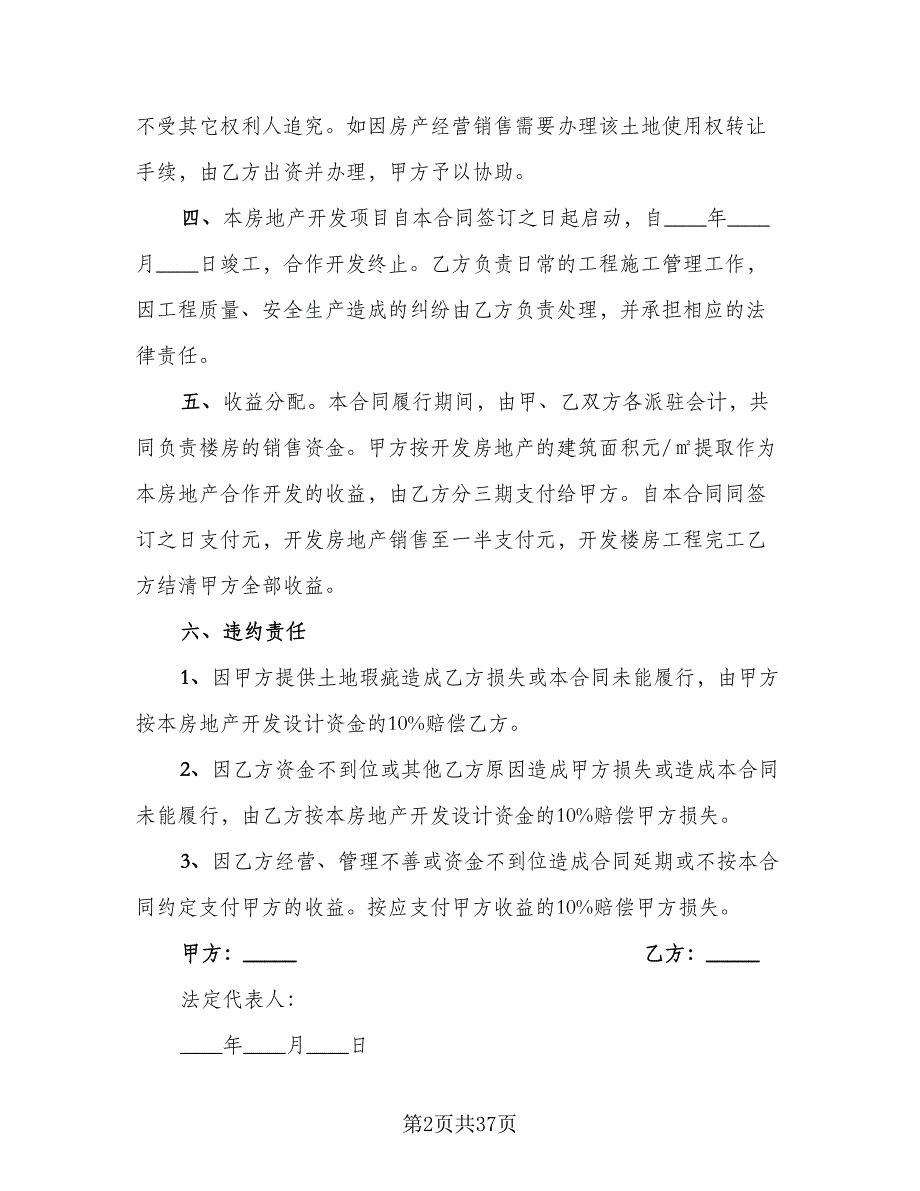 不受其它权利人追究。如因房产经营销售需要办理该土地使用权转让
手续，由乙方出资并办理，甲方予以协助。
四、本房地产开发项目自本合同签订之日起启动，自____年____
月____日竣工，合作开发终止。乙方负责日常的工程施工管理工作，
因工程质量、安全生产造成的纠纷由乙方负责处理，并承担相应的法
律责任。
五、收益分配。本合同履行期间，由甲、乙双方各派驻会计，共
同负责楼房的销售资金。甲方按开发房地产的建筑面积元/㎡提取作为
本房地产合作开发的收益，由乙方分三期支付给甲方。自本合同同签
订之日支付元，开发房地产销售至一半支付元，开发楼房工程完工乙
方结清甲方全部收益。
六、违约责任
1、因甲方提供土地瑕疵造成乙方损失或本合同未能履行，由甲方
按本房地产开发设计资金的10%赔偿乙方。
2、因乙方资金不到位或其他乙方原因造成甲方损失或造成本合同
未能履行，由乙方按本房地产开发设计资金的10%赔偿甲方损失。
3、因乙方经营、管理不善或资金不到位造成合同延期或不按本合
同约定支付甲方的收益。按应支付甲方收益的10%赔偿甲方损失。
甲方：_____ 乙方：_____
法定代表人：
____年____月____日
第2页共37页